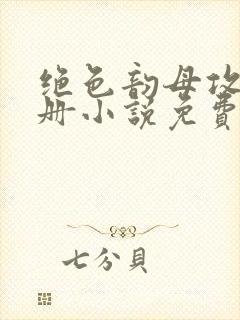 绝色韵母攻
册小说免费
七分貝